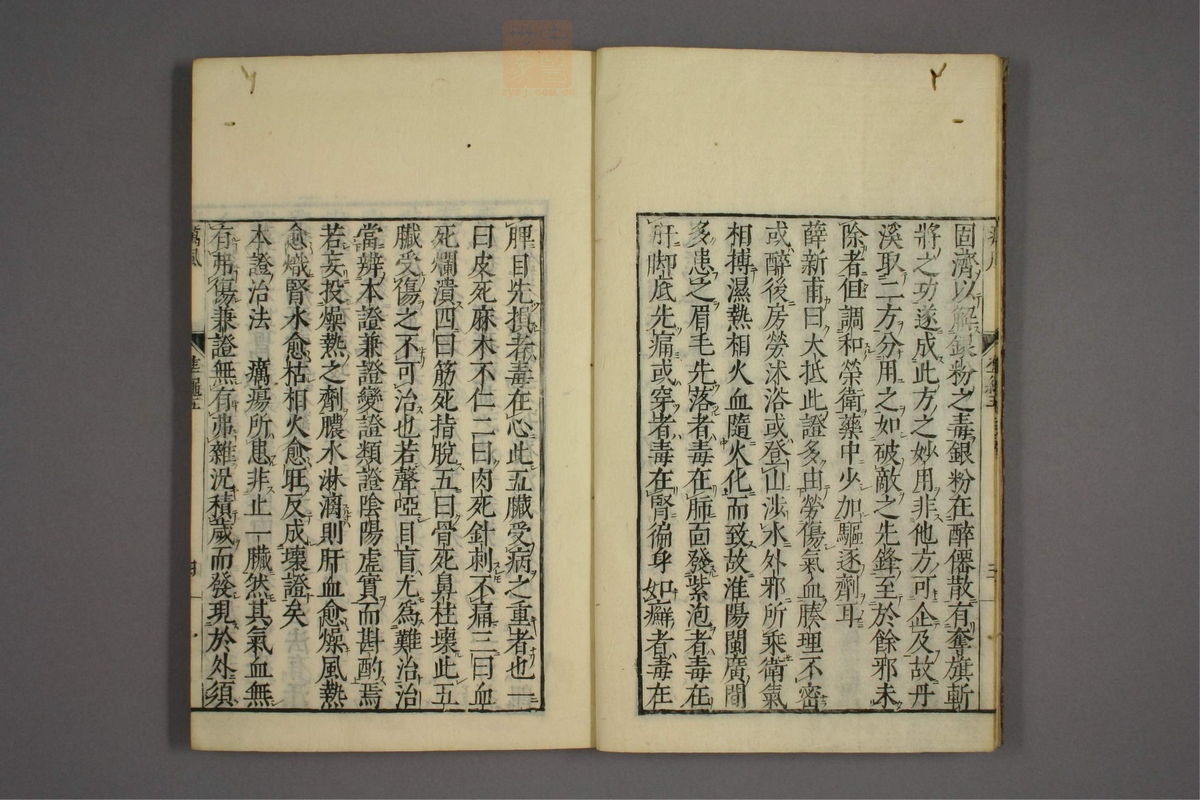 固濟以解銀粉之毒銀粉在醉僊散有奪旗斬
將之功遂成此方之妙用非他方可企及故丹
溪取二方分用之如破敵之先鋒至於餘邪未
除者但調和榮衛藥中少加驅逐劑耳
薛新甫曰大抵此證多由勞傷氣血腠理不密
或醉後房勞沐浴或登山涉水外邪所乘衛氣
相搏濕熱相火血隨火化而致故淮陽閩廣間
多患之眉毛先落者毒在肺面發紫泡者毒在
肝脚底先痛或穿者毒在腎徧身如癬者毒在
脾目先損者毒在心此五臟受病之重者也一
曰皮死麻木不仁二曰肉死針刺不痛三曰血
死爛潰四曰筋死指脫五曰骨死鼻柱壞此五
臟受傷之不可治也若聲啞目盲尤為難治治
當辨本證兼證變證類證陰陽虛實而斟酌焉
若妄投燥熱之劑膿水淋漓則肝血愈燥風熱
愈熾腎水愈枯相火愈旺反成壞證矣
本證治法 癘瘍所患非止一臟然其氣血無
有弗傷兼證無有弗雜況積歲而發現於外須
癘風
準繩五
四